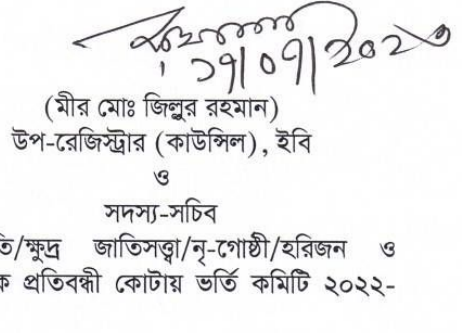 ১৭/০৭/২০২৩
(মীর মোঃ জিল্লুর রহমান)
উপ-রেজিস্ট্রার (কাউন্সিল), ইবি
ও
সদস্য-সচিব
তি/ক্ষুদ্র জাতিসত্ত্বা/নৃ-গোষ্ঠী/হরিজন ও
ক প্রতিবন্ধী কোটায় ভর্তি কমিটি ২০২২-